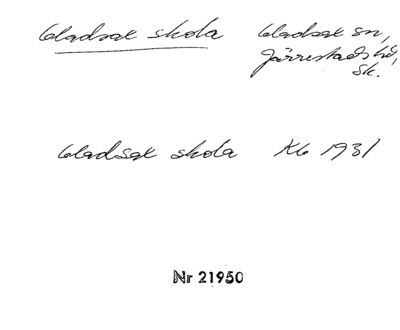 Gladsax skola Gladsax sn,
Järrestads hd,
Sk.
Gladsax skola Kb 1931
Nr 21950